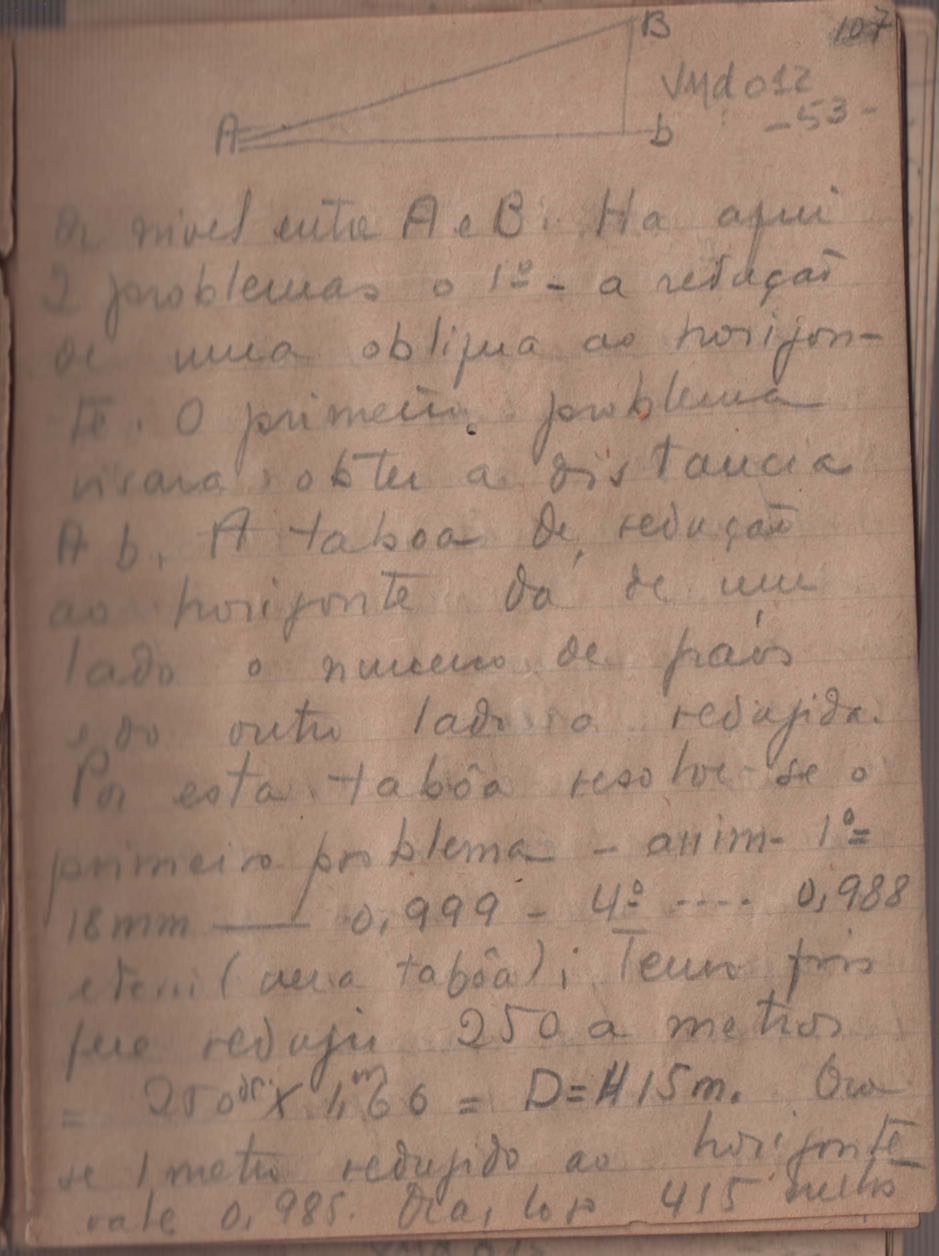 107
B
VMd012
-53-
A
b
de nivel entre A e B. Ha aqui
2 problemas o 1º - a redução
de uma obliqua ao horizon-
te. O primeiro problema
visava obter a distancia
A b. A taboa de redução
ao horizonte dá de um
lado o numero de
e do outro lado a reduzida.
Por esta tabôa resolve-se o
primeiro problema - assim - 1º=
18mm — 0,999 - 4º .... 0,988
(vera tabôa); Temos pois
que reduzir 250 a metros
= 250 × 1,66 = D=415m. Ora
se 1 metro reduzido ao horizonte
vale 0,985. Ora, logo 415 metros